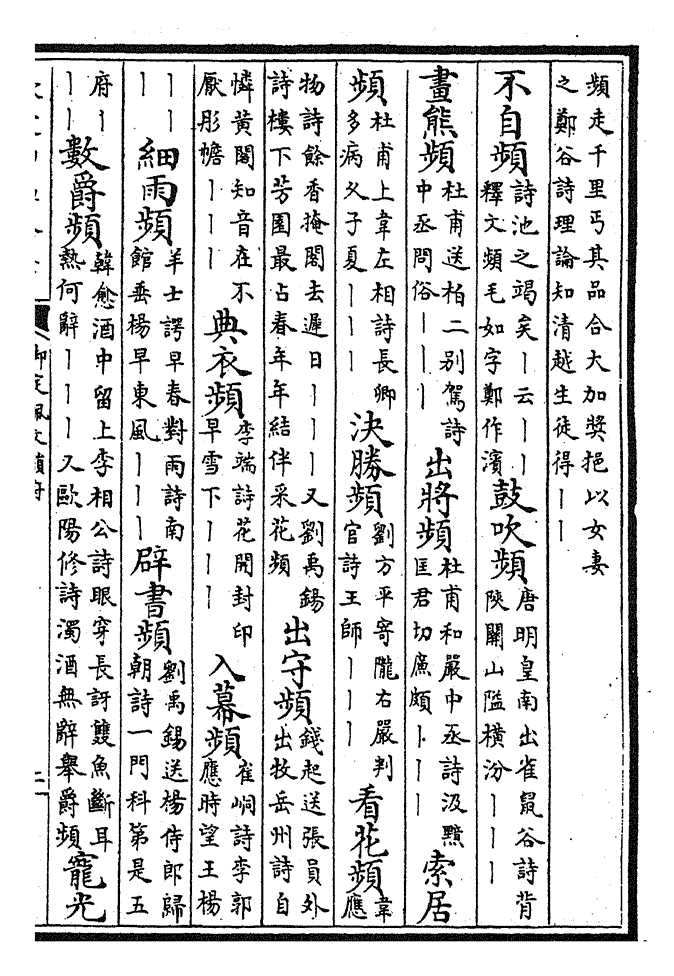 頻走千里丐其品合大加奬挹以女妻之鄭谷詩理論知清越生徒得丨丨
不自頻詩池之竭矣丨云丨丨釋文頻毛如字鄭作濱鼓吹頻唐明皇南出雀鼠谷詩背陝關山隘橫汾丨丨丨
畫熊頻杜甫送柏二别駕詩中丞問俗丨丨丨出將頻杜甫和嚴中丞詩汲黯匡君切廉頗丨丨丨索居
頻杜甫上韋左相詩長卿多病久子夏丨丨丨決勝頻劉方平寄隴右嚴判官詩王師丨丨丨看花頻韋應
物詩餘香掩閣去遲日丨丨丨又劉禹錫詩樓下芳園最占春年年結伴采花頻出守頻錢起送張員外出牧岳州詩自
憐黄閣知音在不厭彤幨丨丨丨典衣頻李端詩花開封印早雪下丨丨丨入幕頻崔峒詩李郭應時望王楊
丨丨丨細雨頻羊士諤早春對雨詩南館垂楊早東風丨丨丨辟書頻劉禹錫送楊侍郎歸朝詩一門科第是五
府丨丨丨數爵頻韓愈酒中留上李相公詩眼穿長訝雙魚斷耳熱何辭丨丨丨又歐陽修詩濁酒無辭舉爵頻寵光
御定佩文韻府
二